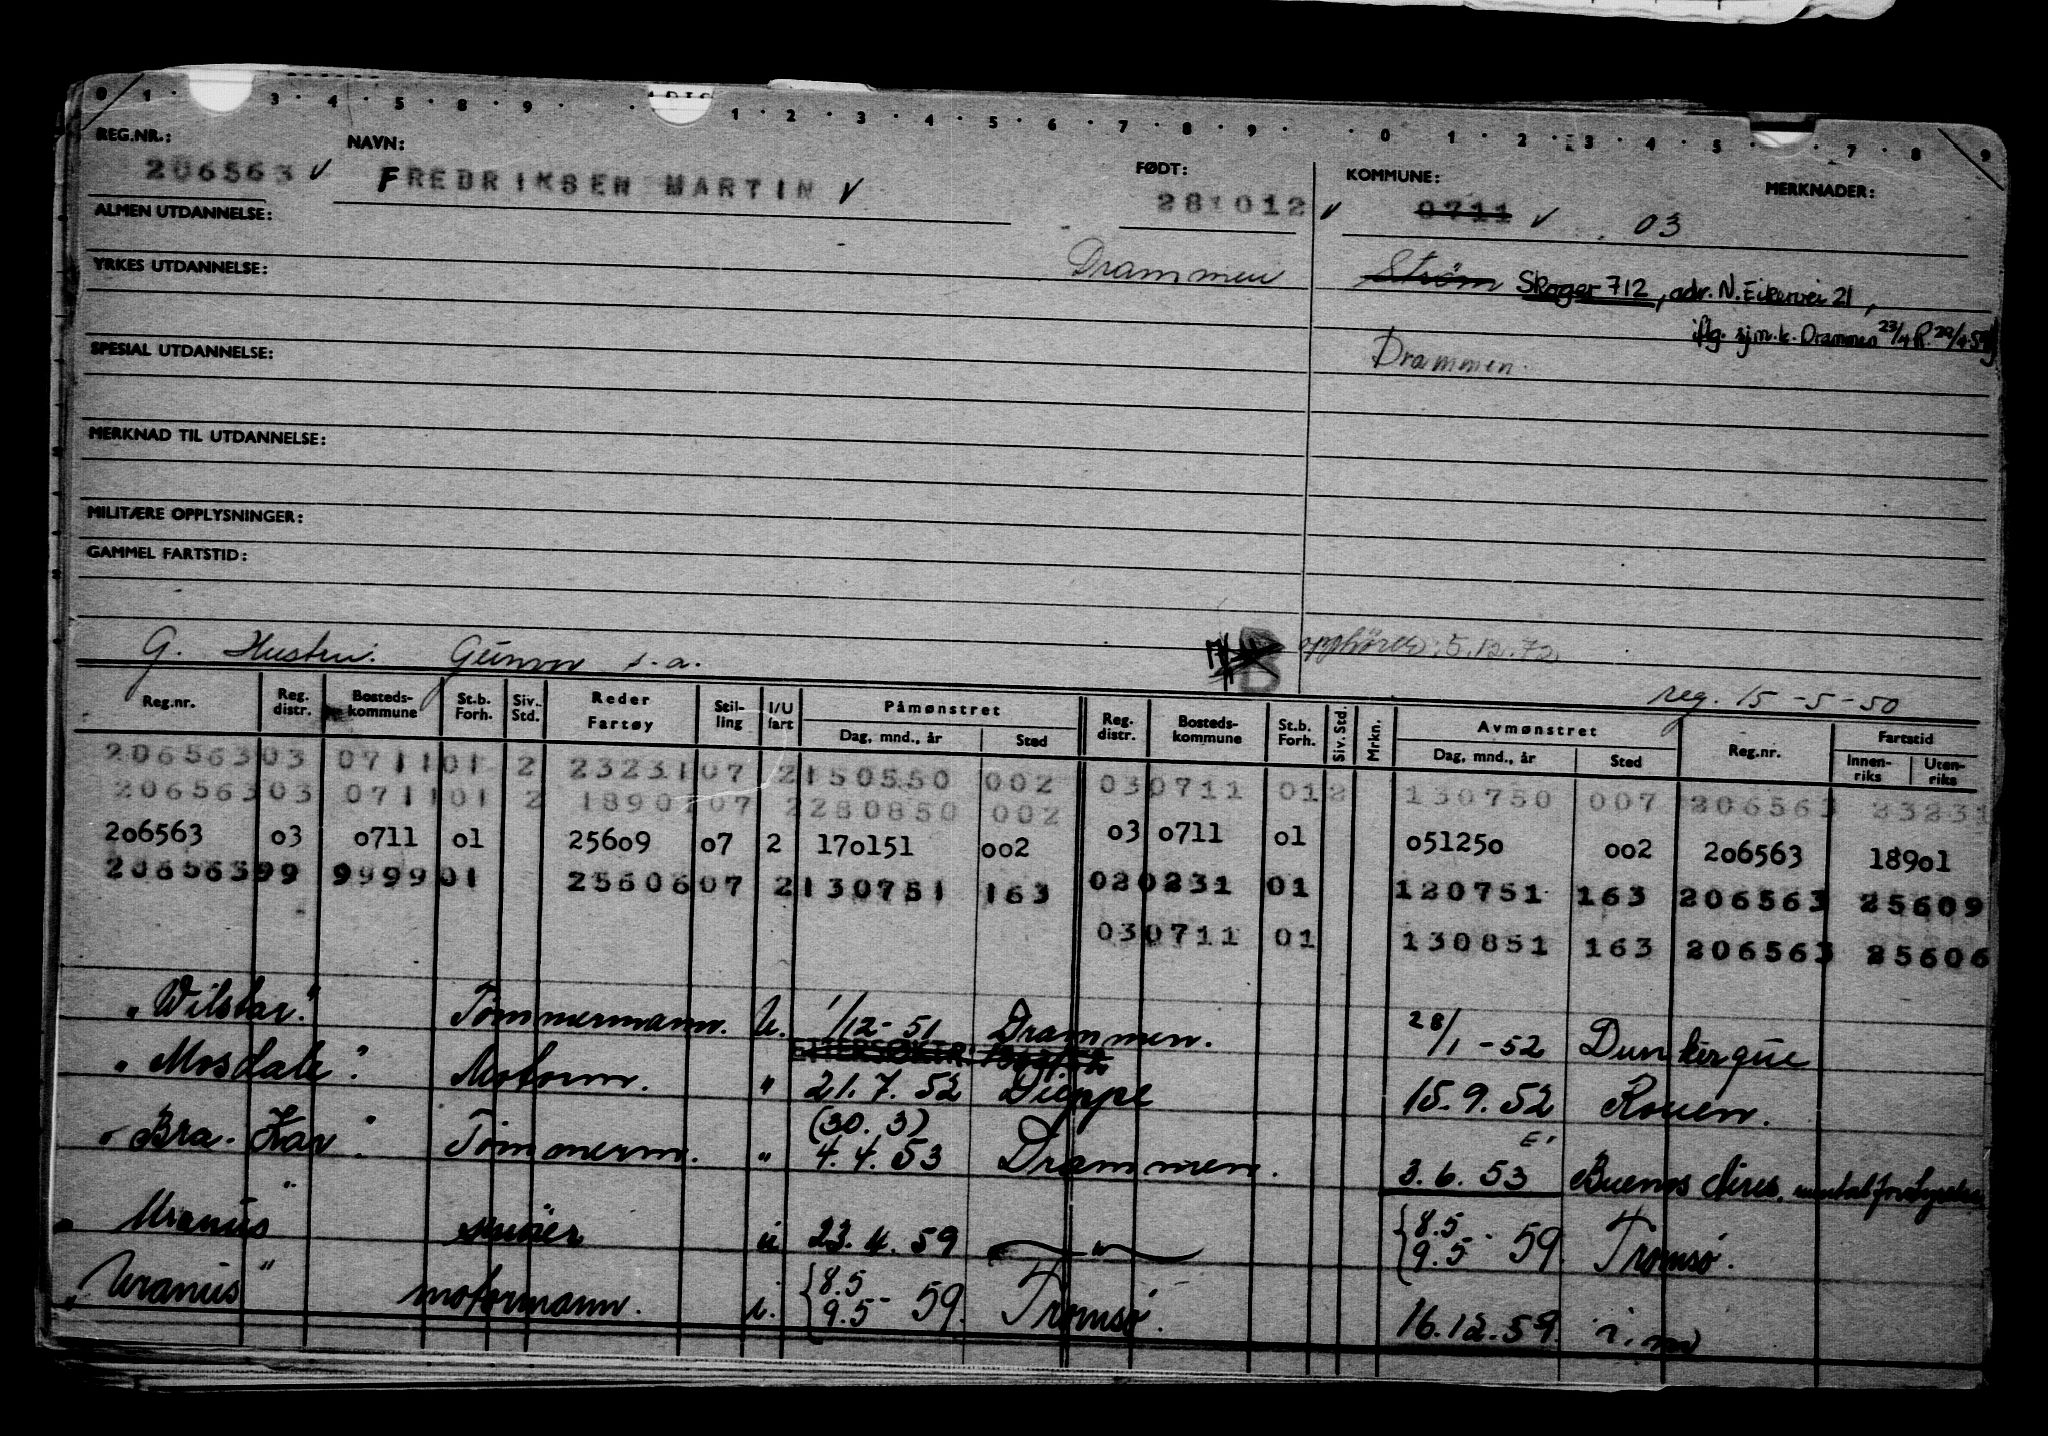 0 1 3 4 5 8 9 1 2 3 4 5 6 7 8 9 0 1 2 3 4 5 7 8 9
REG.NR.: NAVN: FØDT: KOMMUNE: MERKNADER:
206563 √ FREDRIKSEN MARTIN √ 281012 √ 0711 √ 03
ALMEN UTDANNELSE:
Drammen Strøm Skoger 712, adr. N. Eikervei 21,
YRKES UTDANNELSE:
iflg. sjm.k. Drammen 23/4
SPESIAL UTDANNELSE: Drammen.
MERKNAD TIL UTDANNELSE:
MILITÆRE OPPLYSNINGER:
GAMMEL FARTSTID:
G. Hustru: Gunvor s.a. B opphörer: 5.12.72
reg. 15-5-50
Reg.nr. Reg. distr. Bosteds-kommune St.b. Forh. Siv. Std. Reder Fartøy Stil-ling I/U fart Påmønstret Dag, mnd., år Sted Reg. distr. Bosteds-kommune St.b. Forh. Siv. Std. Mrkn. Avmønstret Dag, mnd., år Sted Reg.nr. Fartstid Innen-riks Uten-riks
206563 03 0711 01 2 23231 07 2 150550 002 03 0711 01 2 130750 007 206563 23231
206563 03 0711 01 2 18901 07 2 280850 002
206563 03 0711 01 25609 07 2 170151 002 03 0711 01 051250 002 206563 18901
206563 99 9999 01 25606 07 2 130751 163 02 0231 01 120751 163 206563 25609
03 0711 01 130851 163 206563 25606
"Wilstar." Tømmermann. U. 1/12-51 Drammen. 28/1-52 Dunkerque
ETTERSØKTR.
"Mosdale". Motorm. " 21.7.52 Dieppe 15.9.52 Rouen.
"Bra-Kar". Tømmerm. " (30.3) 4.4.53 Drammen. 3.6.53 Buenos Aires.
"Uranus" 23.4.59 " {8.5 9.5 - 59. Tromsø.
"Uranus" motormann. i. {8.5 9.5 - 59. Tromsø. 16.12.59. i.m